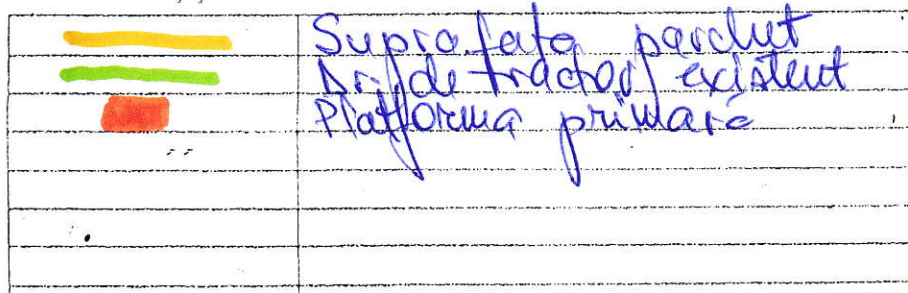 Suprafata parchet
Drum de tractor existent
Platforma primară